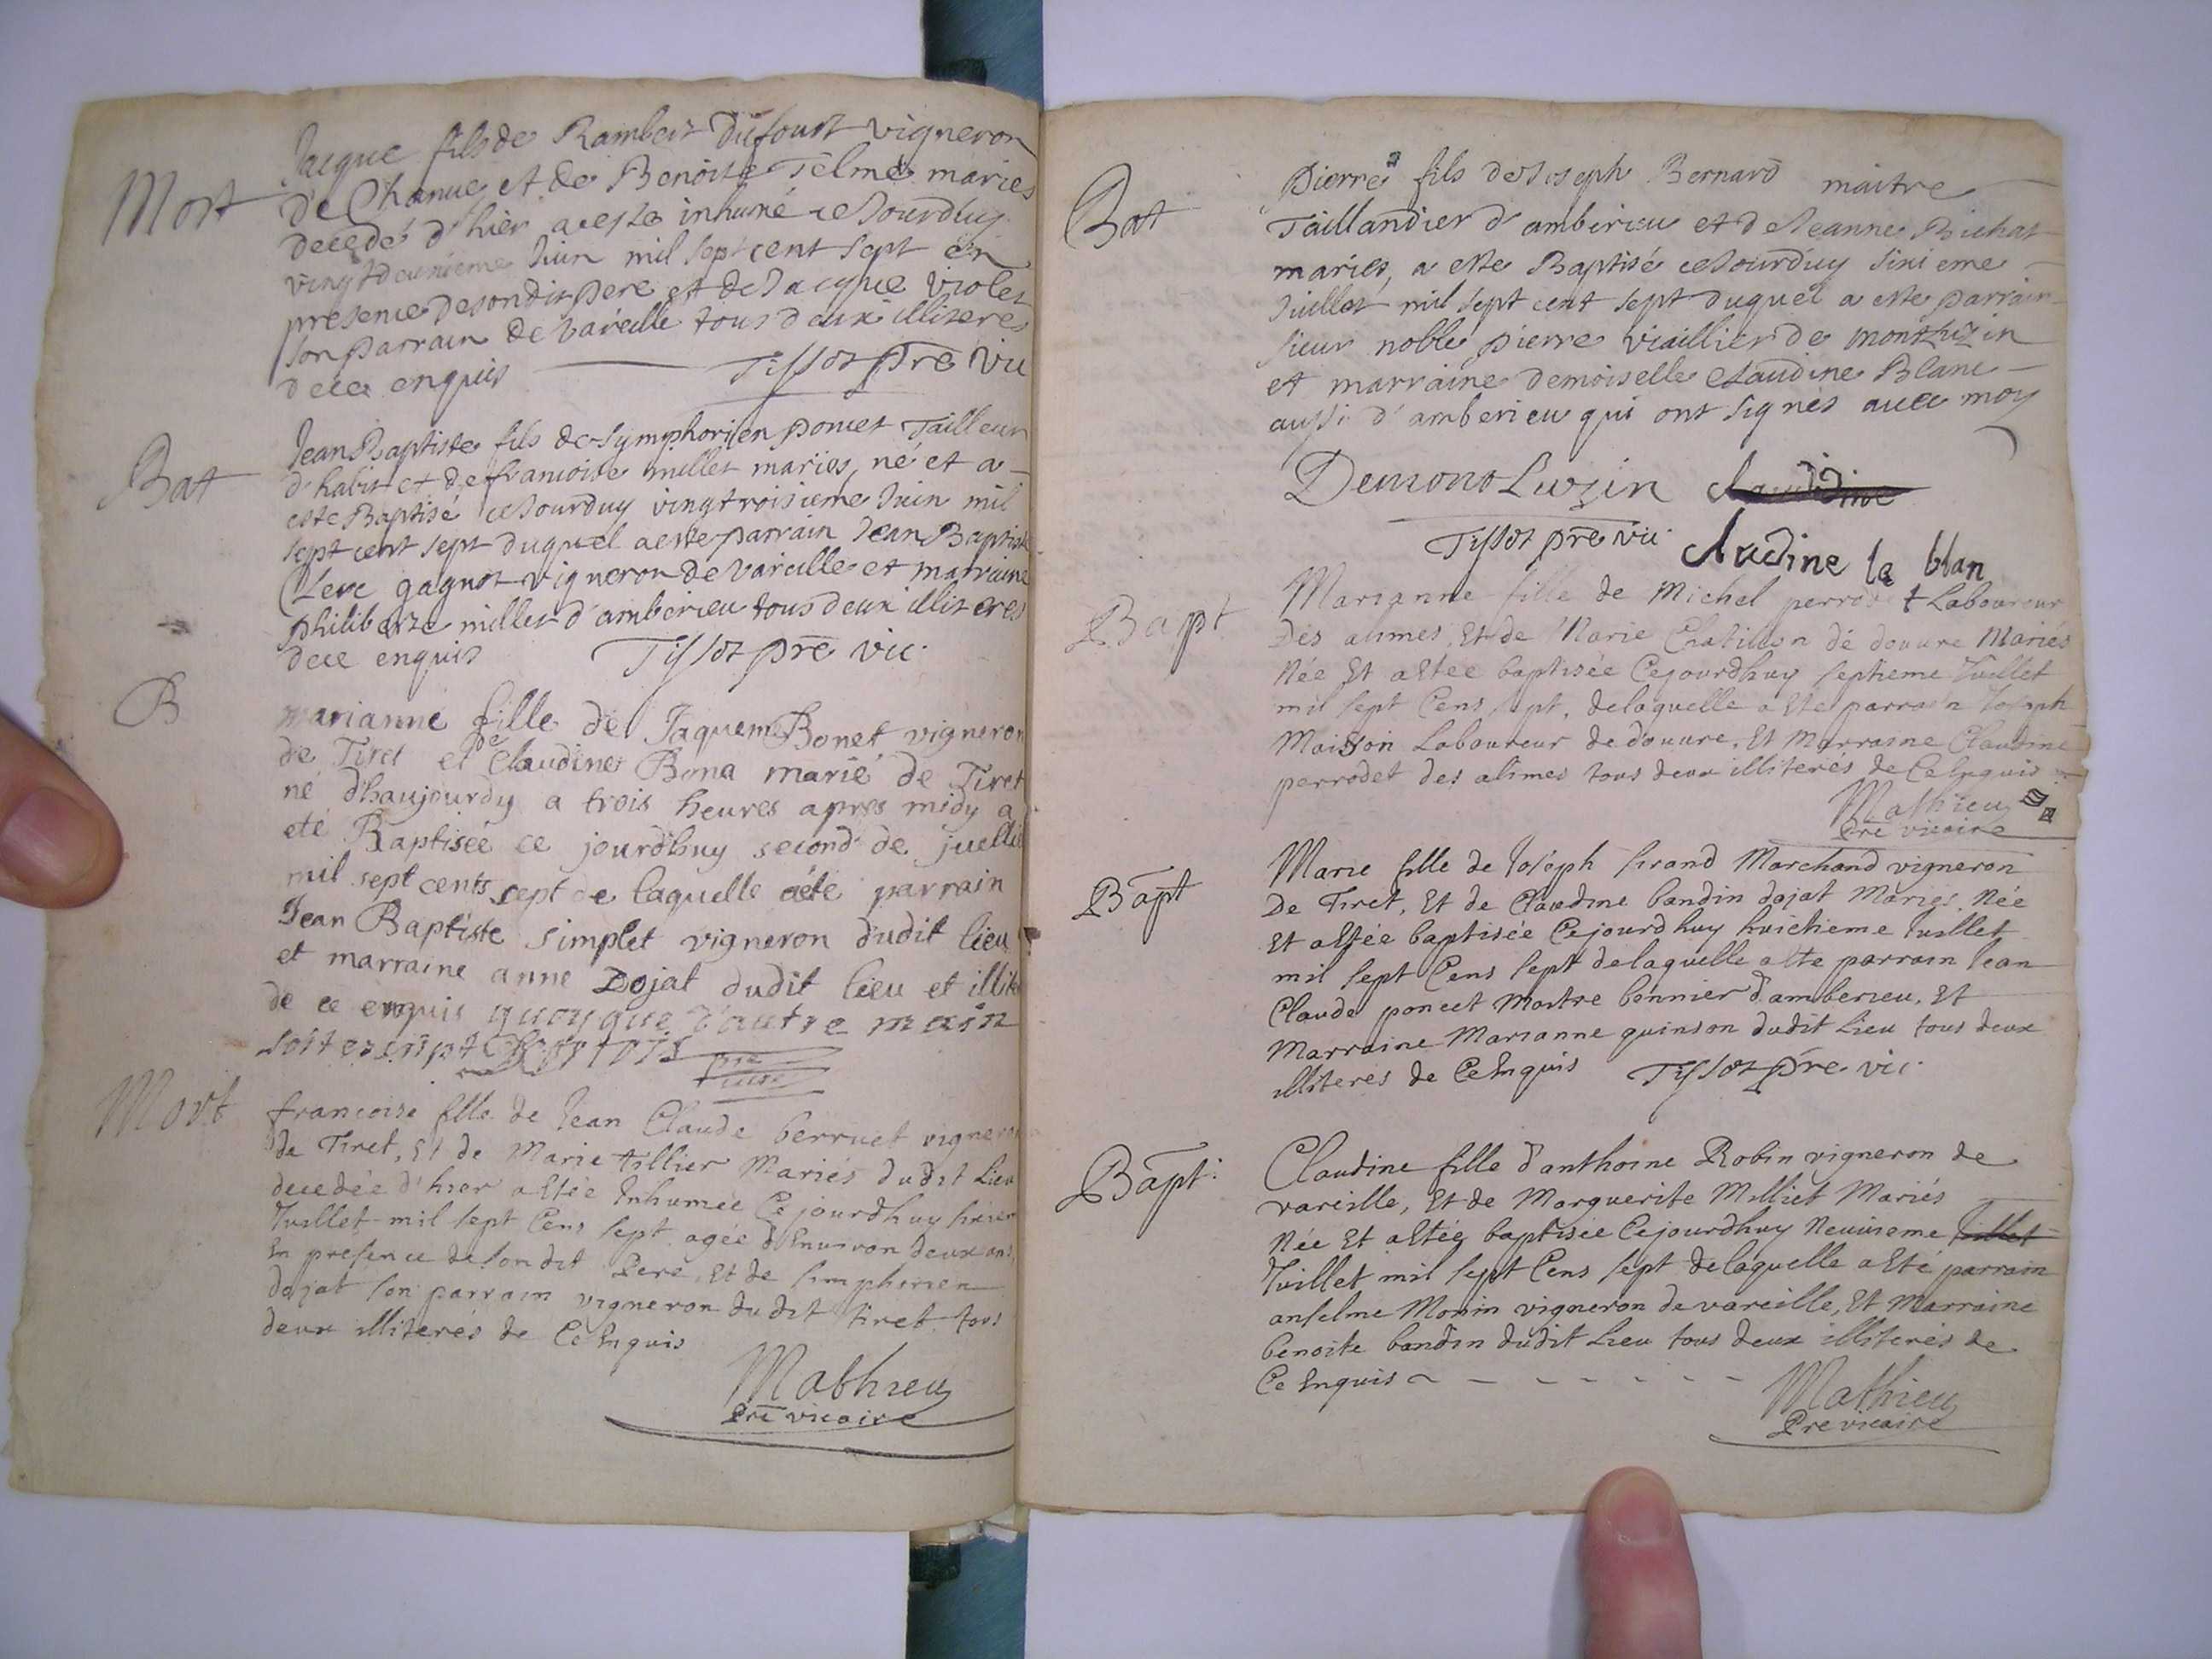 Mort
Jacque fils de Rambert Dufourt vigneron
de Chanue et de Benoite Telme mariés
decedé d'hier a este inhumé ce Jourdhuy
vingtdeuxieme Juin mil sept cent sept en
presence de son dit pere et de Jacque violet
son parrain de Vareille tous deux illiteres
de ce enquis Tissot pre vic
Bat
Jean Baptiste fils de Symphorien poncet Tailleur
d'habit et de francoise millet mariés, né et a
este Baptisé ce Jourduy vingtroisieme Juin mil
sept cent sept duquel a este parrain Jean Baptiste
Clerc gagnot vigneron de Vareille et marraine
philiberte millet d'amberieu tous deux illiteres
de ce enquis Tissot pre vic.
B
marianne fille de Jaquem Bonet vigneron
de Tiret et de Claudine Bona marié de Tiret
né d'haujourdy a trois heures apres midy a
eté Baptiseé ce jourdhuy second de juellet
mil sept cents sept de laquelle aéte parrain
Jean Baptiste simplet vigneron dudit lieu
et marraine anne Dojat dudit lieu et illit
de ce enquis quoyque d'autre main
soit escript
pre
curé
Mort
francoise fille de Jean Claude berruet vigneron
de Tiret, Et de Marie tillier Mariés dudit Lieu
decedée d'hier a Estée Inhumée Ce jourdhuy
Juillet mil sept Cens sept agée d'Environ deux ans,
En presence de son dit Pere, Et de simphorien
dojat son parrain vigneron dudit tiret tous
deux illiterés de Ce Enquis
Mathieu
Pre vicaire
Bat
Pierre fils de Joseph Bernard maitre
Taillandier d'amberieu et de Jeanne Bichat
mariés, a este Baptisé ce Jourduy sixieme
Juillet mil sept cent sept duquel a este parrain
sieur noble pierre viaillier de montluzin
et marraine demoiselle claudine Blanc
aussi d'amberieu qui ont signes avec moy
Demont Luzin claudine
Tissot pre vic. cladine le blan
Bapt
Marianne fille de Michel perrodet Laboureur
Des alimes, Et de Marie Chatillon de douure Mariés
Née Et a Estée baptisée Cejourdhuy septieme Juillet
mil sept Cens sept, delaquelle a Este parrain Joseph
Maisson Laboureur de douure, Et Marraine Claudine
perrodet des alimes tous deux illiterés de Ce Enquis
Mathieu
Pre vicaire
Bapt
Marie fille de Joseph sirand Marchand vigneron
De Tiret, Et de Claudine bandin dojat Mariés Née
Et a Estée baptisée Cejourdhuy huictieme Juillet
mil sept Cens sept delaquelle a Este parrain Jean
Claude poncet Maitre bonnier d'amberieu, Et
Marraine Marianne quinson dudit Lieu tous deux
illiteres de Ce Enquis Tissot pre vic.
Bapt.
Claudine fille d'anthoine Robin vigneron de
vareille, Et de Marguerite Milliet Mariés
Née Et a Estée baptisée Cejourdhuy Neuvieme Juillet
Juillet mil sept Cens sept delaquelle a Esté parrain
anselme Monin vigneron de vareille, Et Marraine
benoite bandin dudit Lieu tous deux illiterés de
Ce Enquis
Mathieu
Pre vicaire